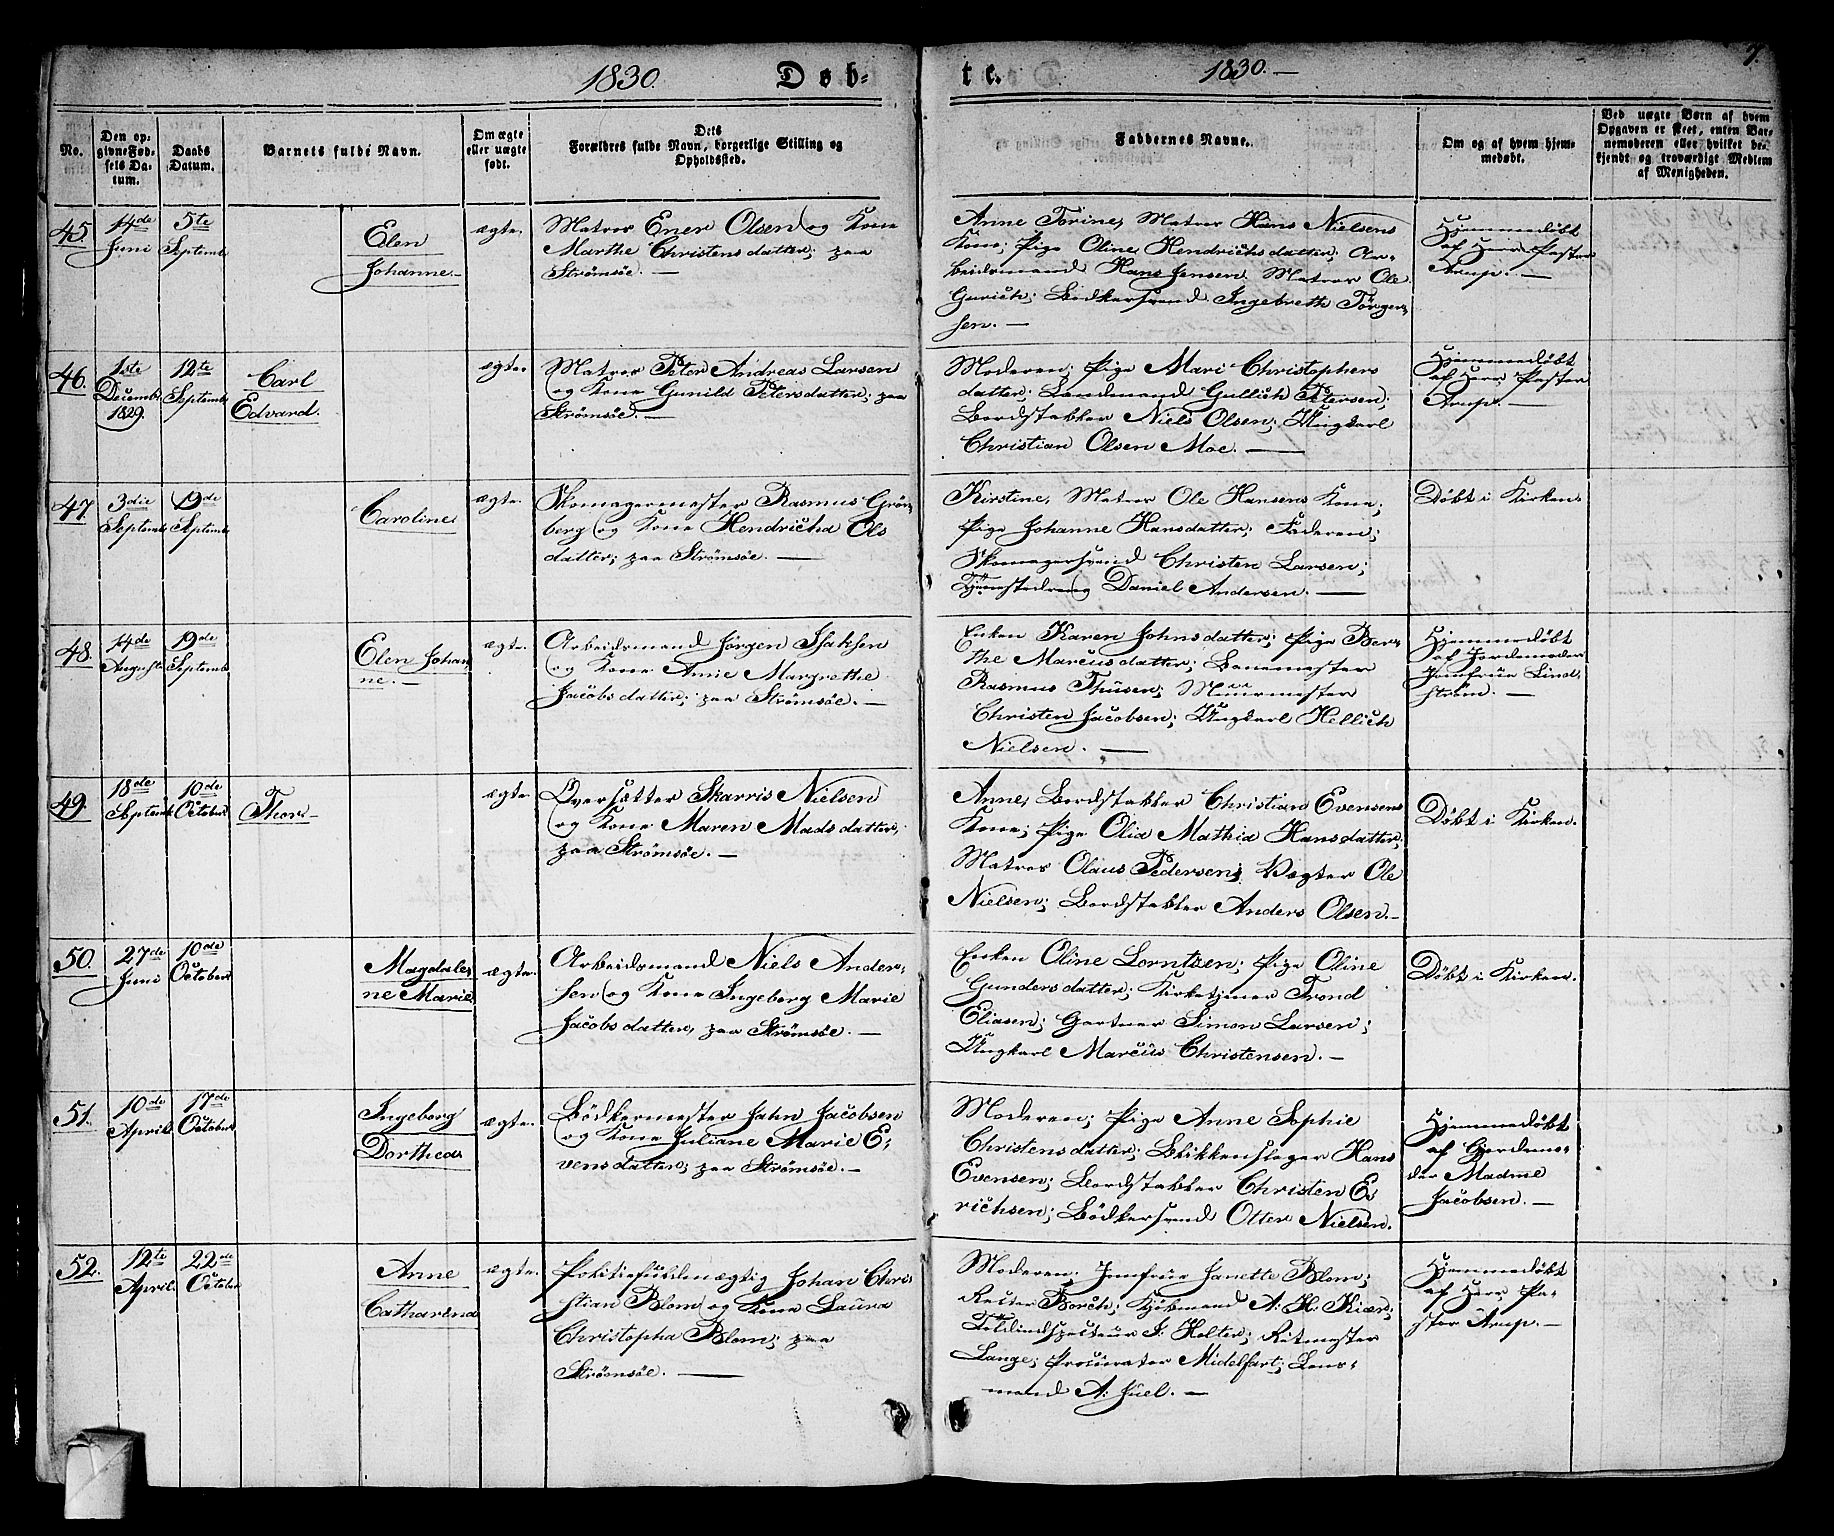 1830. Døb-
te. 1830. —
7.
No.
Den op-
givne Fød-
sels Da-
tum.
Daabs
Datum.
Barnets fulde Navn.
Om ægte
eller uægte
født.
Dets
Forældres fulde Navn, borgerlige Stilling og
Opholdssted.
Faddernes Navne.
Om og af hvem hjem-
medøbt.
Ved uægte Børn af hvem
Opgaven er skeet, enten Bar-
nemoderen eller hvilket be-
kjendt og troværdigt Medlem
af Menigheden.
45.
14de
Juni
5te
Septemb
Elen
Johanne.-
ægte.
Matros Ener Olsen og Kone
Marthe Christensdatter; paa
Strømsøe. —
Anne Torine, Matros Hans Nielsens
Kone; Pige Oline Hendrichsdatter; Ar-
beidsmand Hans Jensen, Matros Ole
Gurich; Bødkersvend Ingebreth Törger-
sen. —
Hjemmedöbt
af Herr Pastor
Arup. —
46.
1ste
Decemb:
1829.
12te
Septemb
Carl
Edvard.
ægte.
Matros Peter Andreas Larsen
og Kone Gunild Petersdatter; paa
Strømsøe. —
Moderen; Pige Mari Christophers
datter; Landmand Gullich Petersen;
Bordstabler Niels Olsen; Ungkarl
Christian Olsen Moe. —
Hjemmedöbt
af Herr Pastor
Arup. —
47
3die
Septemb
19de
Septemb
Caroline
ægte.
Skomagermester Rasmus Grön-
berg og Kone Hendricha Ols
datter; paa Strømsøe. —
Kirstine, Matros Ole Hansens Kone;
Pige Johanne Hansdatter; Faderen;
Skomagersvend Christen Larsen;
Daniel Andersen. —
Döbt i Kirken.
48.
14de
August
19de
Septemb
Elen Johan
ne. —
ægte.
Arbeidsmand Jörgen Isaksen
og Kone Anne Margrethe
Jacobsdatter; paa Strømsøe. —
Enken Karen Johnsdatter; Pige Ber-
the Marcusdatter; Banemester
Rasmus Thüsen; Muurmester
Christen Jacobsen; Ungkarl Hellich
Nielsen. —
Hjemmedöbt
af Jordemoder
Jomfrue Lind
ström. —
49.
18de
Septemb
10de
October
Thor-
ægte.
Oversætter Skarris Nielsen
og Kone Maren Madsdatter;
paa Strømsøe. —
Anne, Bordstabler Christian Evensens
Kone; Pige Olia Mathia Hansdatter;
Matros Olaus Pedersen; Vægter Ole
Nielsen; Bordstabler Anders Olsen.-
Döbt i Kirken.
50.
27de
Juni
10de
October
Magdale-
ne Marie
ægte.
Arbeidsmand Niels Ander-
sen og Kone Ingeborg Marie
Jacobsdatter, paa Strømsøe. —
Enken Oline Lorntsen; Pige Oline
Gundersdatter; Kirketjener Trond
Eliasen; Gartner Simon Larsen;
Ungkarl Marcüs Christensen. —
Döbt i Kirken.
51.
10de
April
17de
October
Ingeborg
Dorthea
ægte.
Bödkermester Jahn Jacobsen
og Kone Juliane Marie E-
vensdatter; paa Strømsøe. —
Moderen; Pige Anne Sophie
Christensdatter; Blikkenslager Hans
Evensen; Bordstabler Christen E-
richsen; Bödkersvend Otter Nielsen.
Hjemmedöbt
af Gjordemo-
der Madme
Jacobsen. —
52.
12te
April.
22de
Octob
Anne
Catharina
ægte.
Politiefuldmægtig Johan Chri-
stian Blom og Kone Laura
Christopha Blom; paa
Strömsöe. —
Moderen; Jomfrue Janette Blom;
Rector Borch; Kjöbmand A. H. Kiær;
Toldindspecteur J. Holter; Ritmester
Lange; Procurator Midelfart; Lens-
mand A: Juel. —
Hjemmedöbt
af Herr Pa-
stor Arup. —